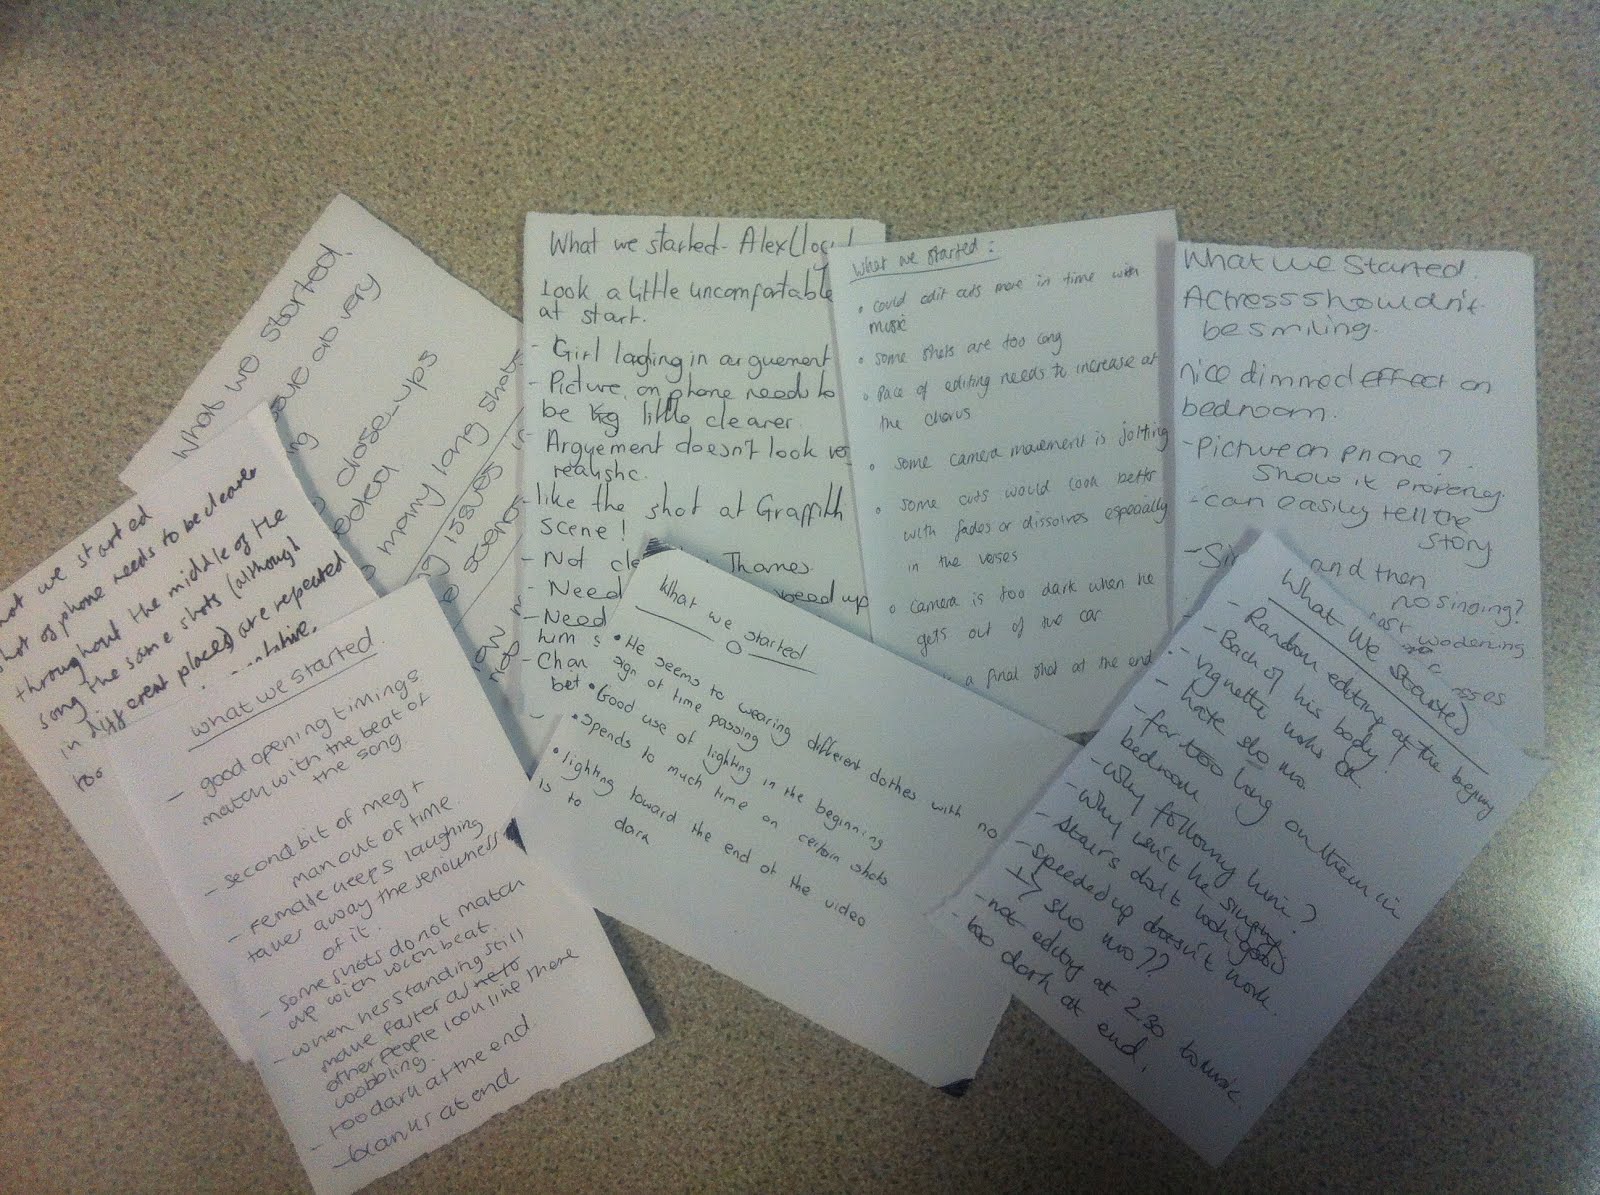 What we started.
very
close-ups
many long shots
issues
What we started
shot of phone needs to be clearer
throughout the middle of the
song the same shots (although
in different places) are repeated
too
What we started.
- good opening timings
match with the beat of
the song.
- second bit of meg +
man out of time
- Female keeps laughing
takes away the seriousness
of it.
- some shots do not match
up with with beat.
- when hes standing still
make faster as
other people look like there
wobbling.
- too dark at the end.
- blank us at end
What we started - Alex
Look a little uncomfortable
at start.
- Girl laging in arguement
- Picture on phone needs to
be little clearer.
- Arguement doesn't look
realistic.
- like the shot at Graffith
scene!
- Not Thames
- Need speed up
- Need
him s
- Chan
bet
What we started
• He seems to wearing different clothes with no
sign of time passing
• Good use of lighting in the beginning
• Spends to much time on certain shots
• lighting toward the end of the video
is to dark
What we started:
• could edit cuts more in time with
music
• some shots are too long
• Pace of editing needs to increase at
the chorus
• some camera movement is jolting
• some cuts would look better
with fades or dissolves especially
in the verses
• camera is too dark when he
gets out of the car
a final shot at the end
What we started.
Actress shouldn't
be smiling.
nice dimmed effect on
bedroom.
- Picture on phone?
Show it properly.
- can easily tell the
story
and then
no singing?
What We Started
- Random editing at the beginning
- Back of his body!
- Vignette works ok
- hate slo mo.
- far too long on them in
bedroom
- Why following him?
- Why isn't he singing
- Stairs don't look good
- speeded up doesn't work.
slo mo??
- not editing at 2.30 to music.
- too dark at end.